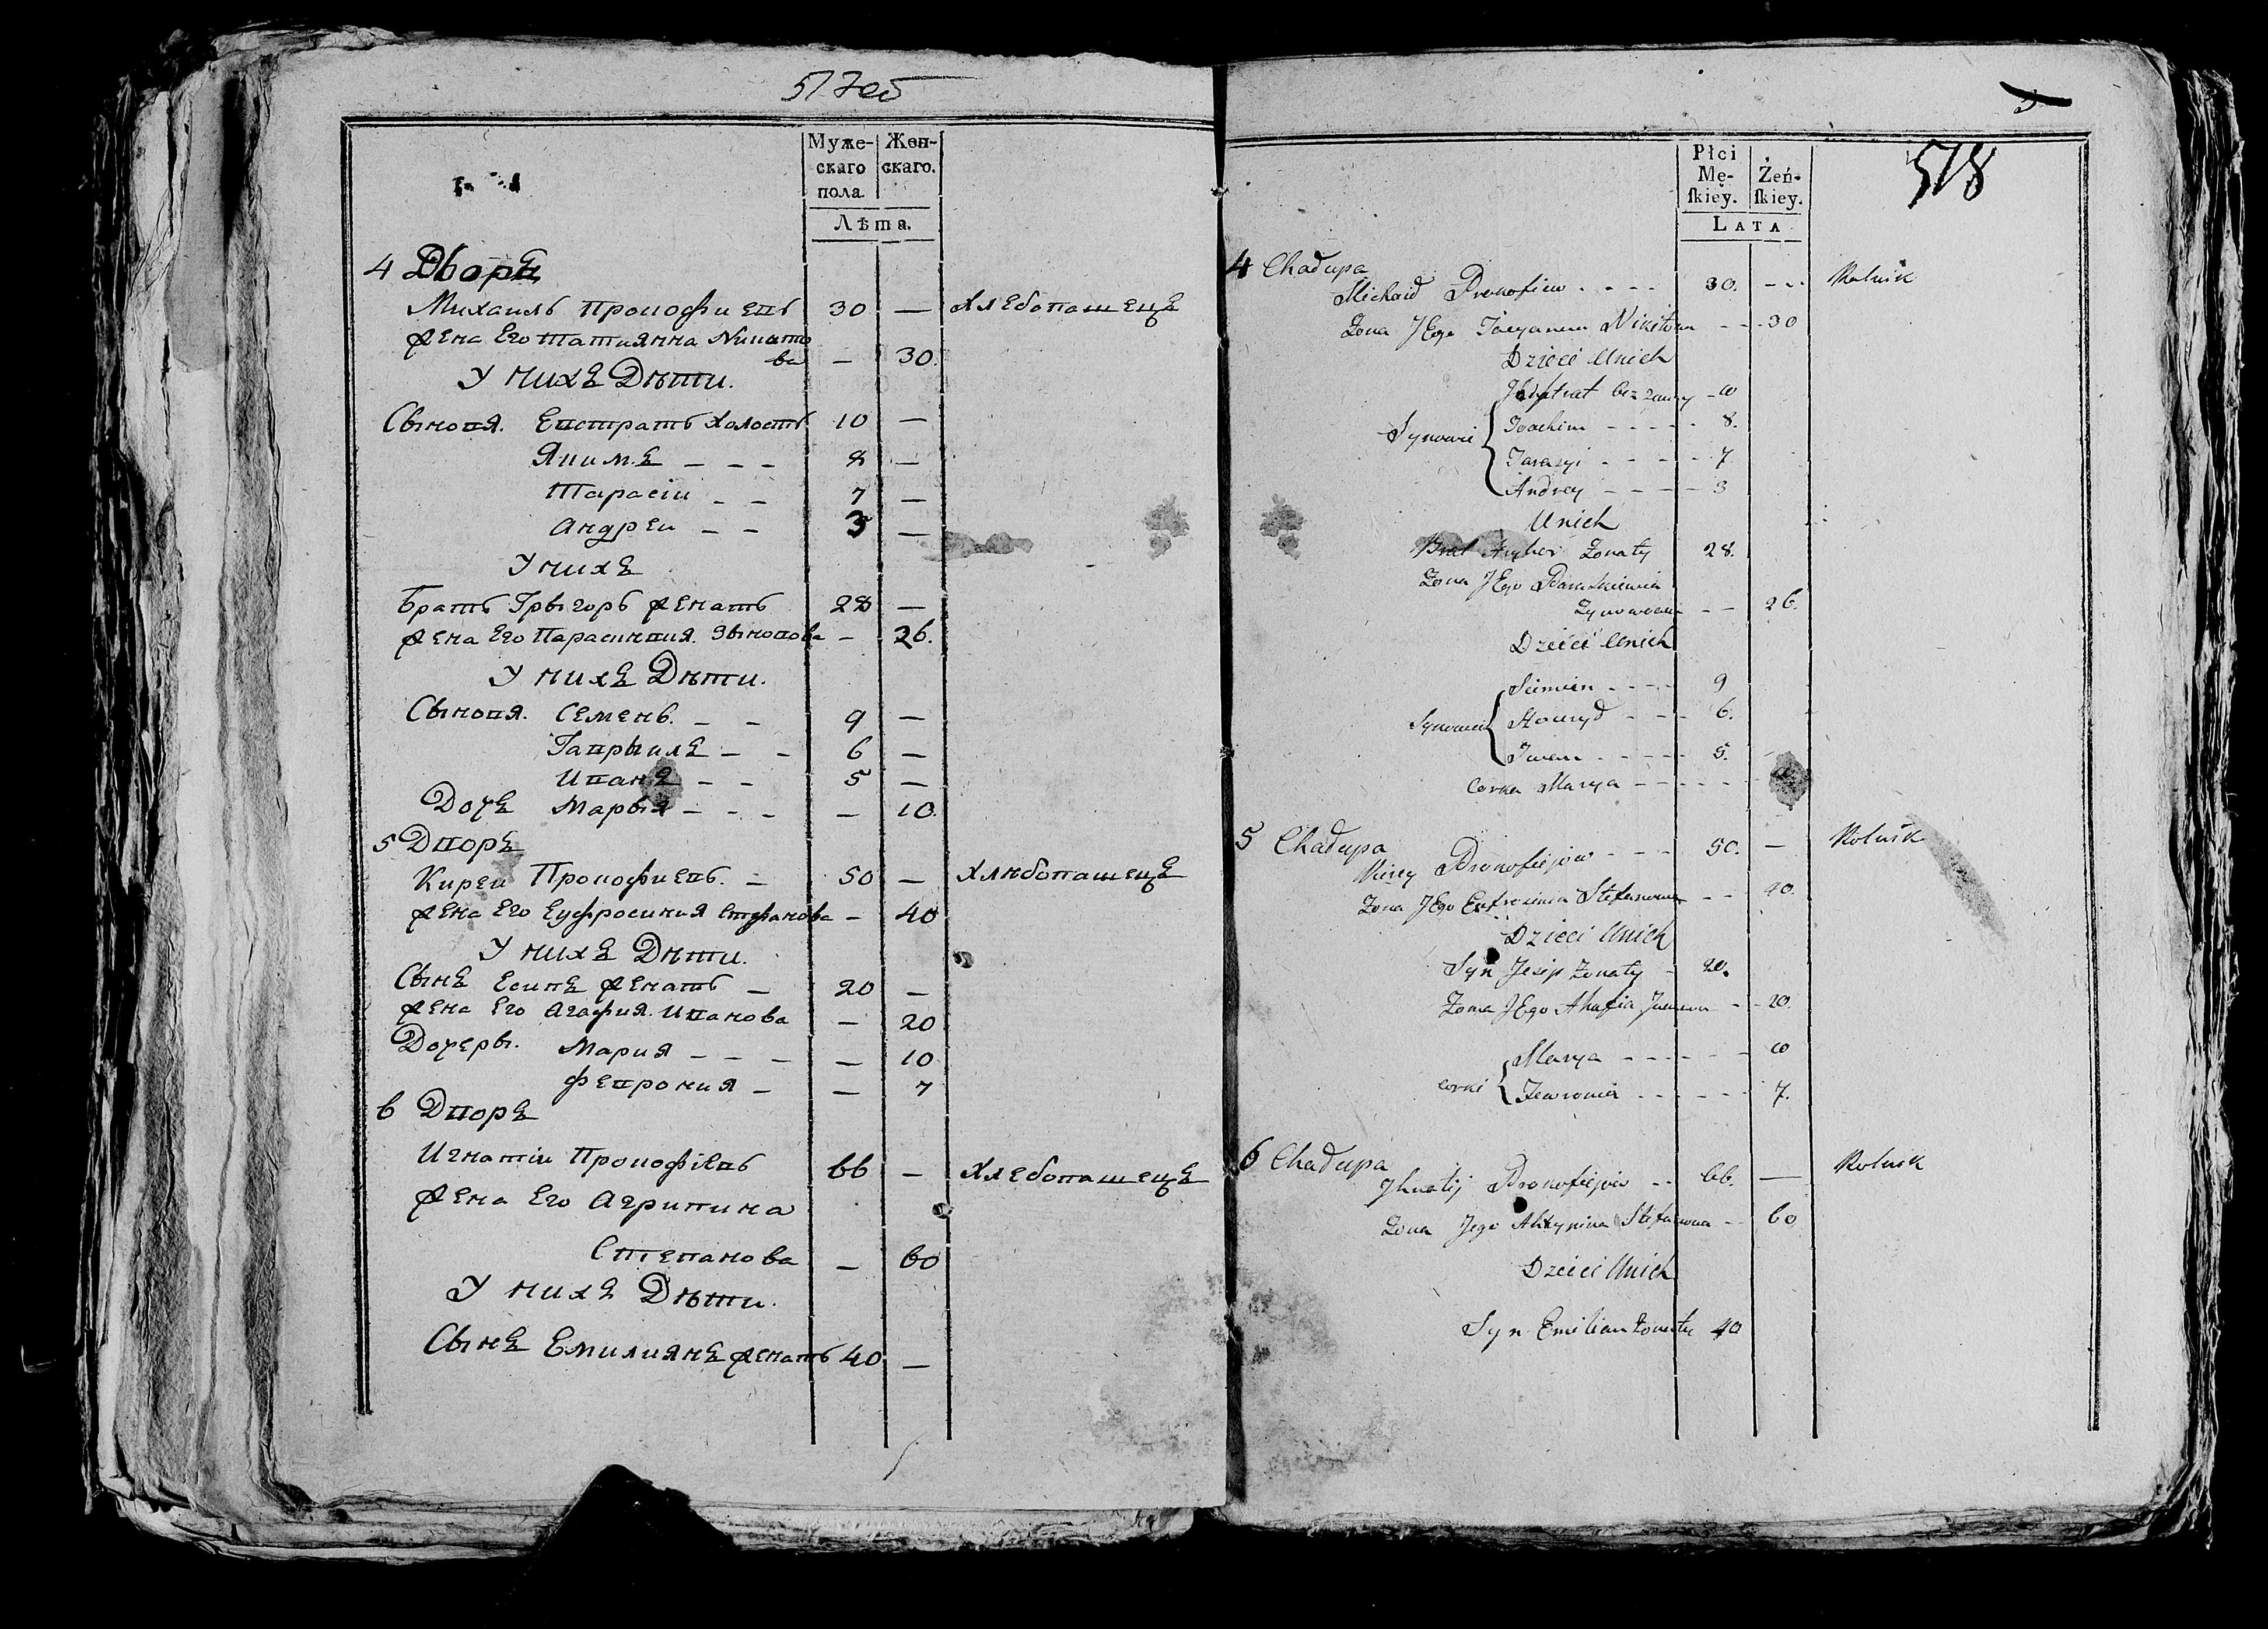 517об
Муже- Жен-
скаго скаго.
пола
Лѣта.
4 Дворъ
Михаилъ Прокофиевъ 30 — Хлебопашецъ
Жена Его Татиянна Никито
ва — 30.
У нихъ Дѣти.
Сыновя. Евстратъ Холостъ 10 —
Якимъ — — — 8 —
Тарасіи — — 7 —
Андреи — — 3 —
У нихъ
Братъ Грыгоръ Женатъ 28 —
Жена Его Параскивия Зыновова — 26.
У нихъ Дѣти.
Сыновя. Семенъ. — — 9 —
Гаврыилъ — — 6 —
Иванъ — — 5 —
Дочъ Марыя — — — — 10.
5 Дворъ
Киреи Прокофиевъ. — 50 — Хлѣбопашецъ
Жена Его Еуфросиния Стефанова — 40
У нихъ Дѣти.
Сынъ Есипъ Женатъ — 20 —
Жена Его Агафия Иванова — 20
Дочеры. Мария — — — — 10
Феврония — — 7
6 Дворъ
Игнатіи Прокофіевъ 66 — Хлебопашецъ
Жена Его Агрипина
Степанова — 60
У нихъ Дѣти.
Сынъ Емилиянъ Женатъ 40 —
518
Płci
Mę- Żeń-
ſkiey. ſkiey.
LATA
4 Chałupa
Michaił Prokofiew . - - - 30. - - . Rolnik
Żona JEgo Tacyanna Nikitowa - - - 30
Dzieci Unich
Jewstrat bez żenny - 10
Synowie Joachim - - - - - 8.
Tarasyi - - - - 7
Andrey - - - - 3
Unich
Brat Hryhor Żonaty 28.
Żona JEgo Paraskiewia
Zynowowa - - 26.
Dzieci Unich
Siemien - - - - 9
Synowie Hawrył - - - 6.
Iwan - - - - - 5.
Corka Marya - - - - -
5 Chałupa
Kirey Prokofiejew - - - 50. — Rolnik
Żona JEgo Eufrosinia Stefanowna - - 40.
Dzieci Unich
Syn Jesip Żonaty - 20.
Żona JEgo Ahafia Iwanowa - - 20.
Marya - - - - - - 10
Corki Fewronia - - - - - - 7.
6 Chałupa
Ihnatij Prokofiejew - - 66. — Rolnik
Żona Jego Ahrypina Stefanowna - - 60
Dzieci Unich
Syn Emilian Żonaty 40